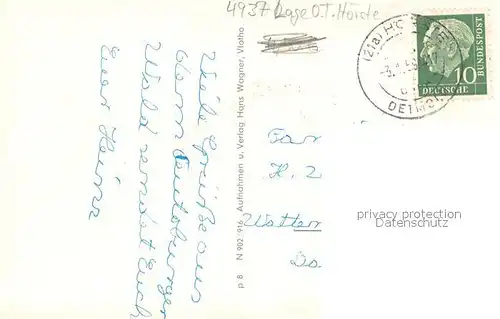 4937 Lage O.T. Hörste
Viele Grüße aus
dem Teutoburger
Wald sendet Euch
Euer Heinz
p 8 N 902/916 Aufnahmen u. Verlag Hans Wagner, Vlotho
(21a) HÖ
DETM
10
DEUTSCHE
BUNDESPOST
Fam
H. Z
Watten
Do
privacy protection
Datenschutz